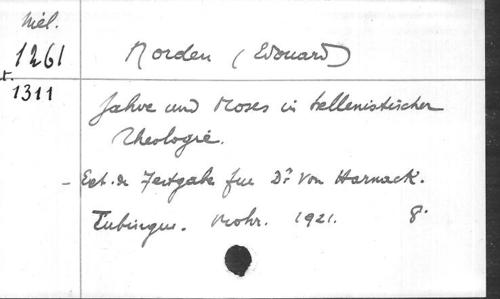 Miél.
1261
t.
1311
Norden (Edouard)
Jahve und Moses in hellenistischer
Theologie.
- Ext. de Festgabe fur Dr. Von Harnack.
Tubingue. Mohr. 1921. 8.